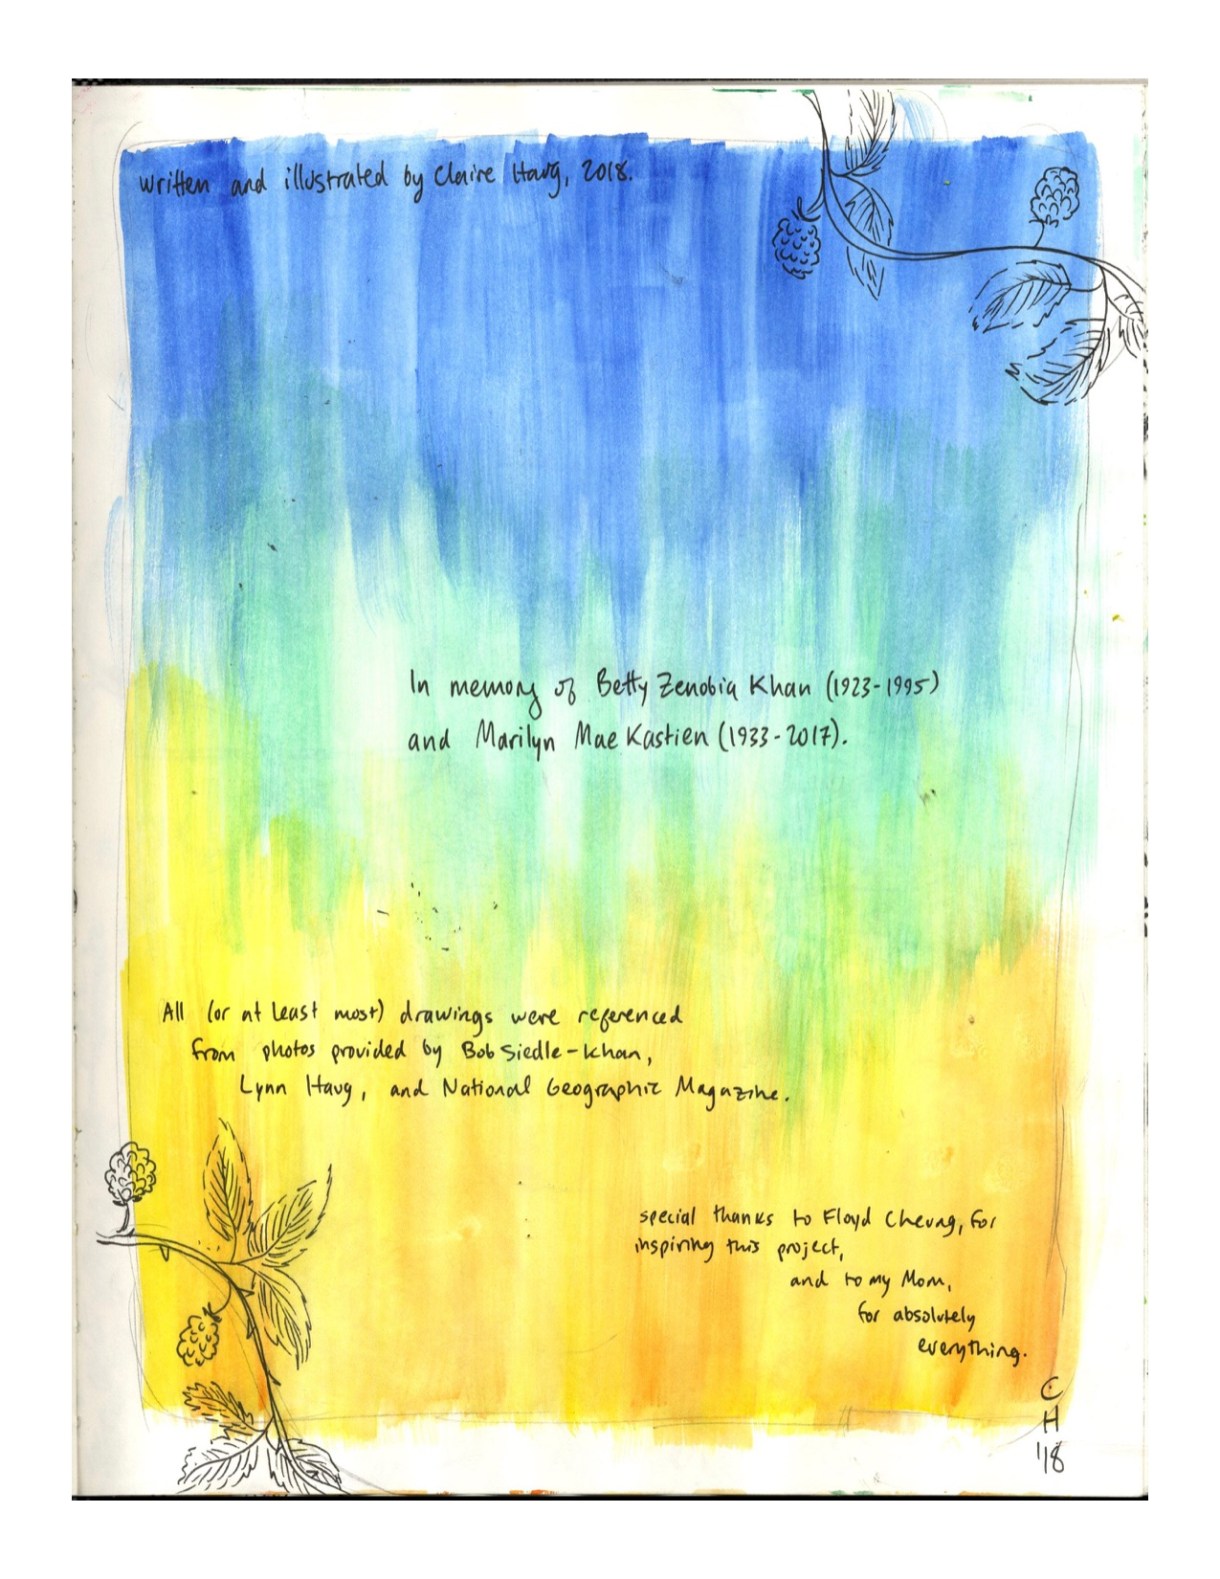 written and illustrated by Claire Haug, 2018.
In memory of Betty Zenobia Khan (1923-1995)
and Marilyn Mae Kastien (1933-2017).
All (or at least most) drawings were referenced
from photos provided by Bob Siedle-Khan,
Lynn Haug, and National Geographic Magazine.
special thanks to Floyd Cheung, for
inspiring this project,
and to my Mom,
for absolutely
everything.
C
H
'18